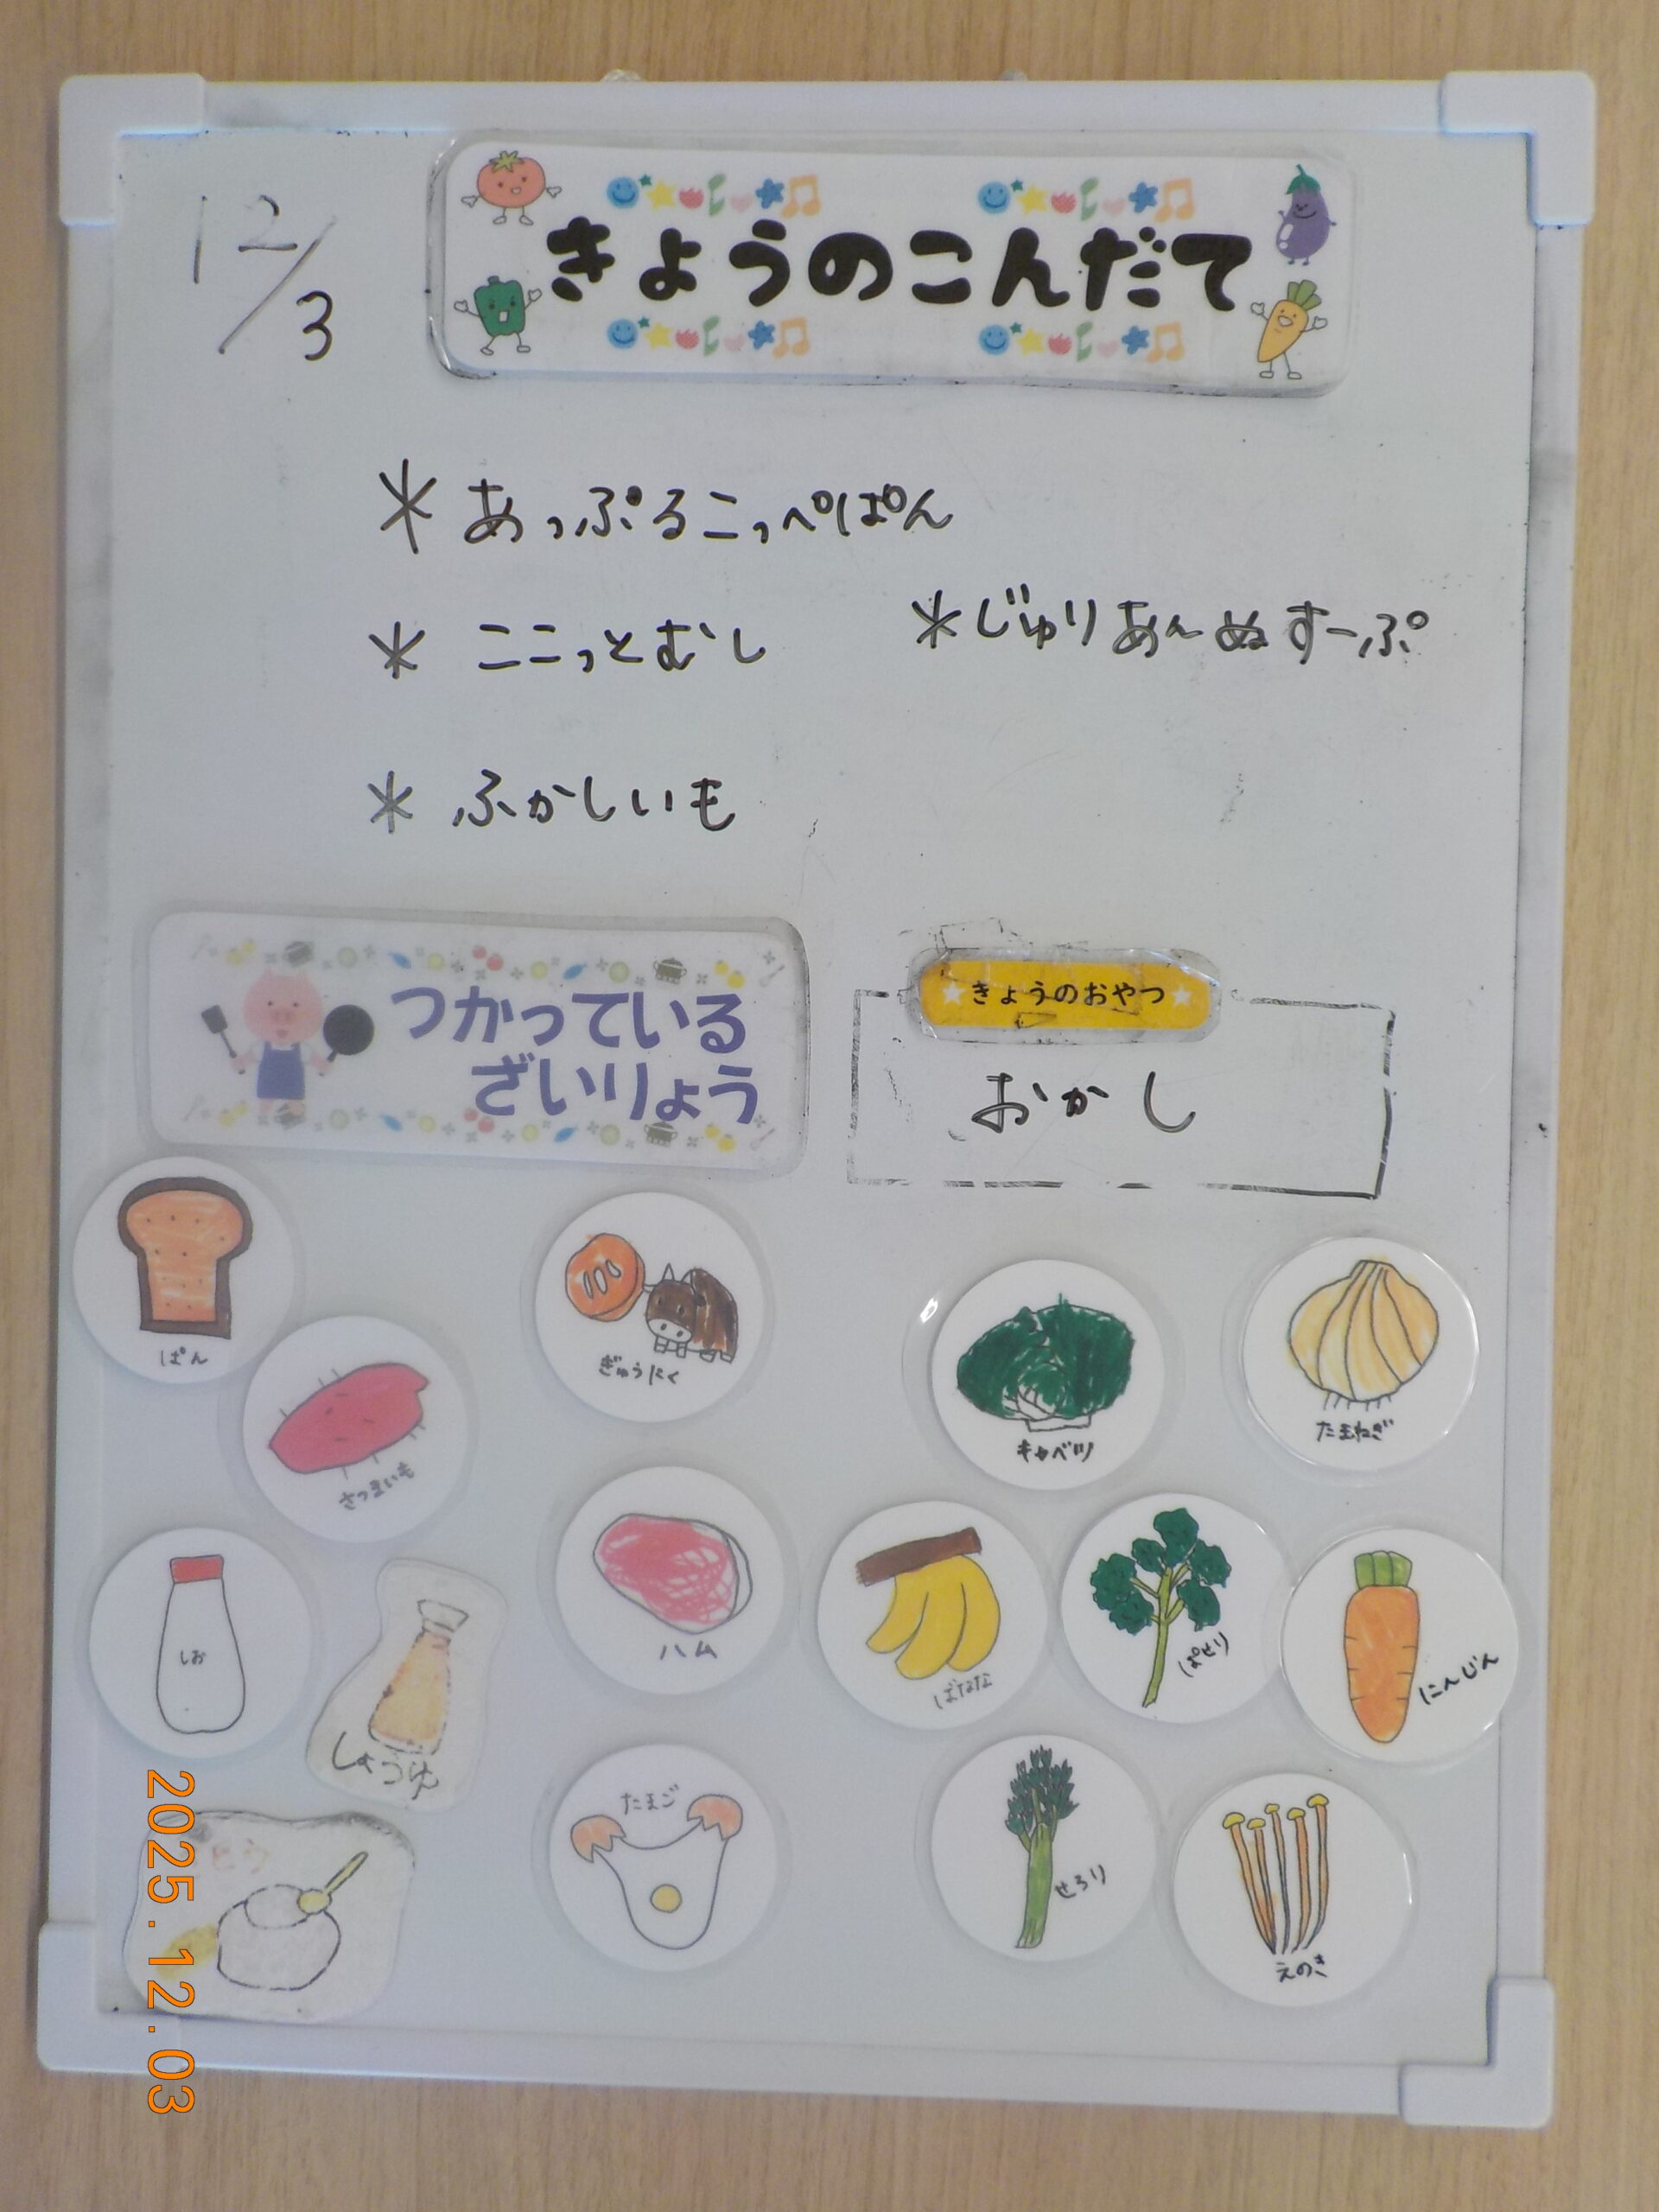 12/3
きょうのこんだて
* あっぷるこっぺぱん
* ここっとむし
* じゅりあんぬすーぷ
* ふかしいも
つかっている
ざいりょう
きょうのおやつ
おかし
ぱん
ぎゅうにく
キャベツ
たまねぎ
さつまいも
しお
しょうゆ
ハム
ばなな
ぱせり
にんじん
とう
たまご
せろり
えのき
2025.12.03